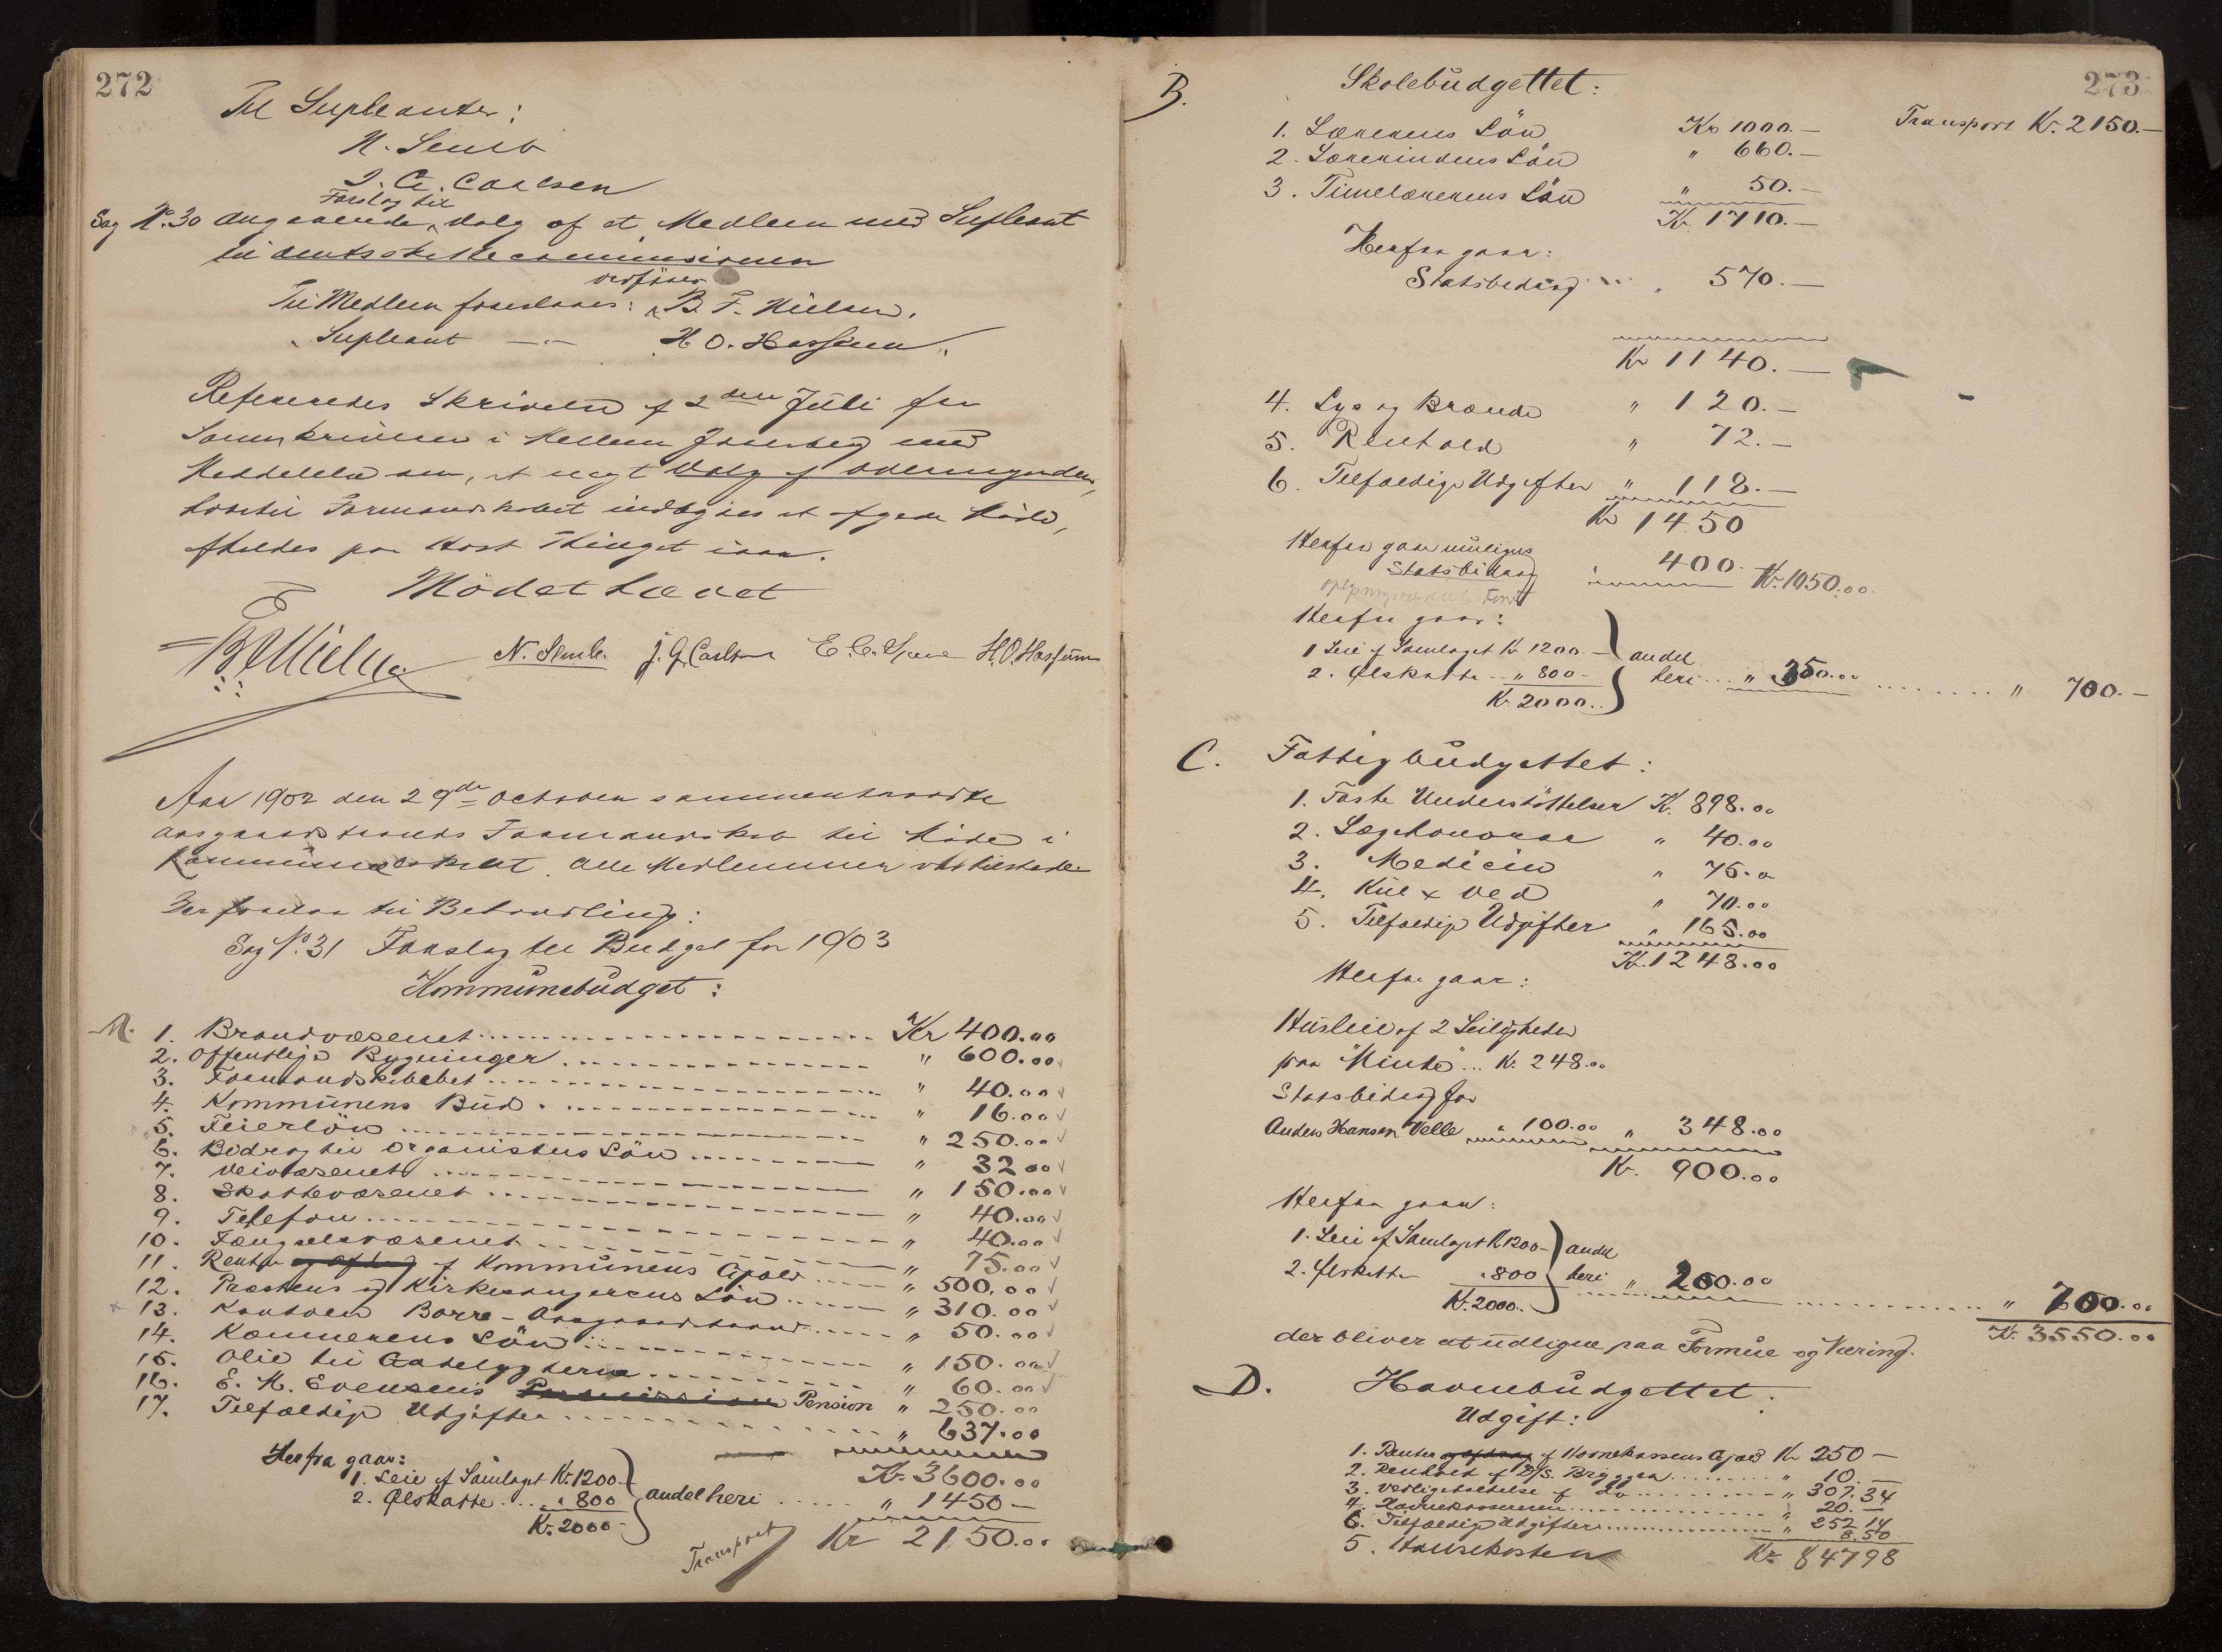 272
Til Supleanter:
N. Semb
J. G. Carlsen
Forslag til
Sag No. 30 angaaende Valg af et Medlem med Supleant
til amtsskattecommissionen
vedföies
Til Medlem foreslaaes: B. F. Nielsen.
" Supleant —"— H. O. Hassum.
Refereredes Skrivelse af 2den Juli fra
Sorenskriveren i Mellem Jarlsberg med
Meddelelse om, at nyt Valg af Overformynder,
hvortil Formandskabet indbydes at afgive Møde,
afholdes paa Høst Thinget iaar.
Mödet hævet
N. Semb. J. G. Carlsen H. O. Hassum
Aar 1902 den 29de October sammentraadte
Aasgaardstrands Formandskab til Møde i
Kommunelokalet. Alle Medlemmer var tilstede
Der forelaa til Behandling:
Sag No. 31 Forslag til Budget for 1903
Kommunebudget:
A. 1. Brandvæsenet Kr 400.00
2. Offentlige Bygninger " 600.00
3. Formandskabet " 40.00
4. Kommunens Bud " 16.00
5. Feierlön " 250.00
6. Bidrag til Organistens Lön " 32 00
7. Veivæsenet " 150.00
8. Skattevæsenet " 40.00
9. Telefon " 40.00
10. Fængselsvæsenet " 75.00
11. Renter og afdrag af Kommunens Gjæld " 500.00
12. Præstens og Kirkesangerens Lön " 310.00
13. Kontoen Borre - Aasgaardstrand " 50.00
14. Kæmnerens Lön " 150.00
15. Olie til Gadelygterne " 60.00
16. E. M. Evensens Pension " 250.00
17. Tilfældige Udgifter " 637.00
Kr. 3600.00
Herfra gaar:
1. Leie af Samlaget Kr. 1200.-
2. Ølskatte " 800
Kr. 2000-
andel heri " 1450 —
Transport Kr 2150.00
273
Transport Kr. 2150.—
B. Skolebudgettet:
1. Lærerens Lön Kr 1000.—
2. Lærerindens Lön " 660.—
3. Timelærerens Lön " 50.—
Kr. 1710.—
Herfra gaar:
Statsbidrag " 570.—
Kr 1140.—
4. Lys og Brænde " 120.—
5. Renhold " 72.—
6. Tilfældige Udgifter " 118.—
Kr 1450
Herfra gaar muligens
Statsbidrag 400. Kr. 1050.00
Herfra gaar:
1 Leie af Samlaget Kr 1200.—
2. Ølskatte " 800 -
Kr. 2000..
andel
heri " 350.00 " 700.—
C. Fattigbudgettet:
1. Faste Understöttelser Kr. 898.00
2. Lægehonorar " 40.00
3. Medicin " 75.00
4. Kul & Ved " 70.00
5. Tilfældige Udgifter " 165.00
Kr. 1248.00
Herfra gaar:
Husleie af 2 Leiligheder
paa "Minde" Kr. 248.00
Statsbidrag for
Anders Hansen Velle " 100.00 " 348.00
Kr. 900.00
Herfra gaar:
1. Leie af Samlaget Kr 1200-
2. Ølskatte " 800
Kr. 2000..
andel
heri " 200.00 " 700.00
Kr. 3550.00
der bliver at udligne paa Formue og Næring.
D. Havnebudgettet.
Udgift:
1. Renter og afdrag af Havnekassens Gjæld Kr 250 —
2. Renhold af D/S. Bryggen " 10.—
3. Vedligeholdelse af Do " 307.34
4. Havnekassereren " 20.—
6. Tilfældige Udgifter " 252 14
5. Havnekosten 8.50
Kr. 84798